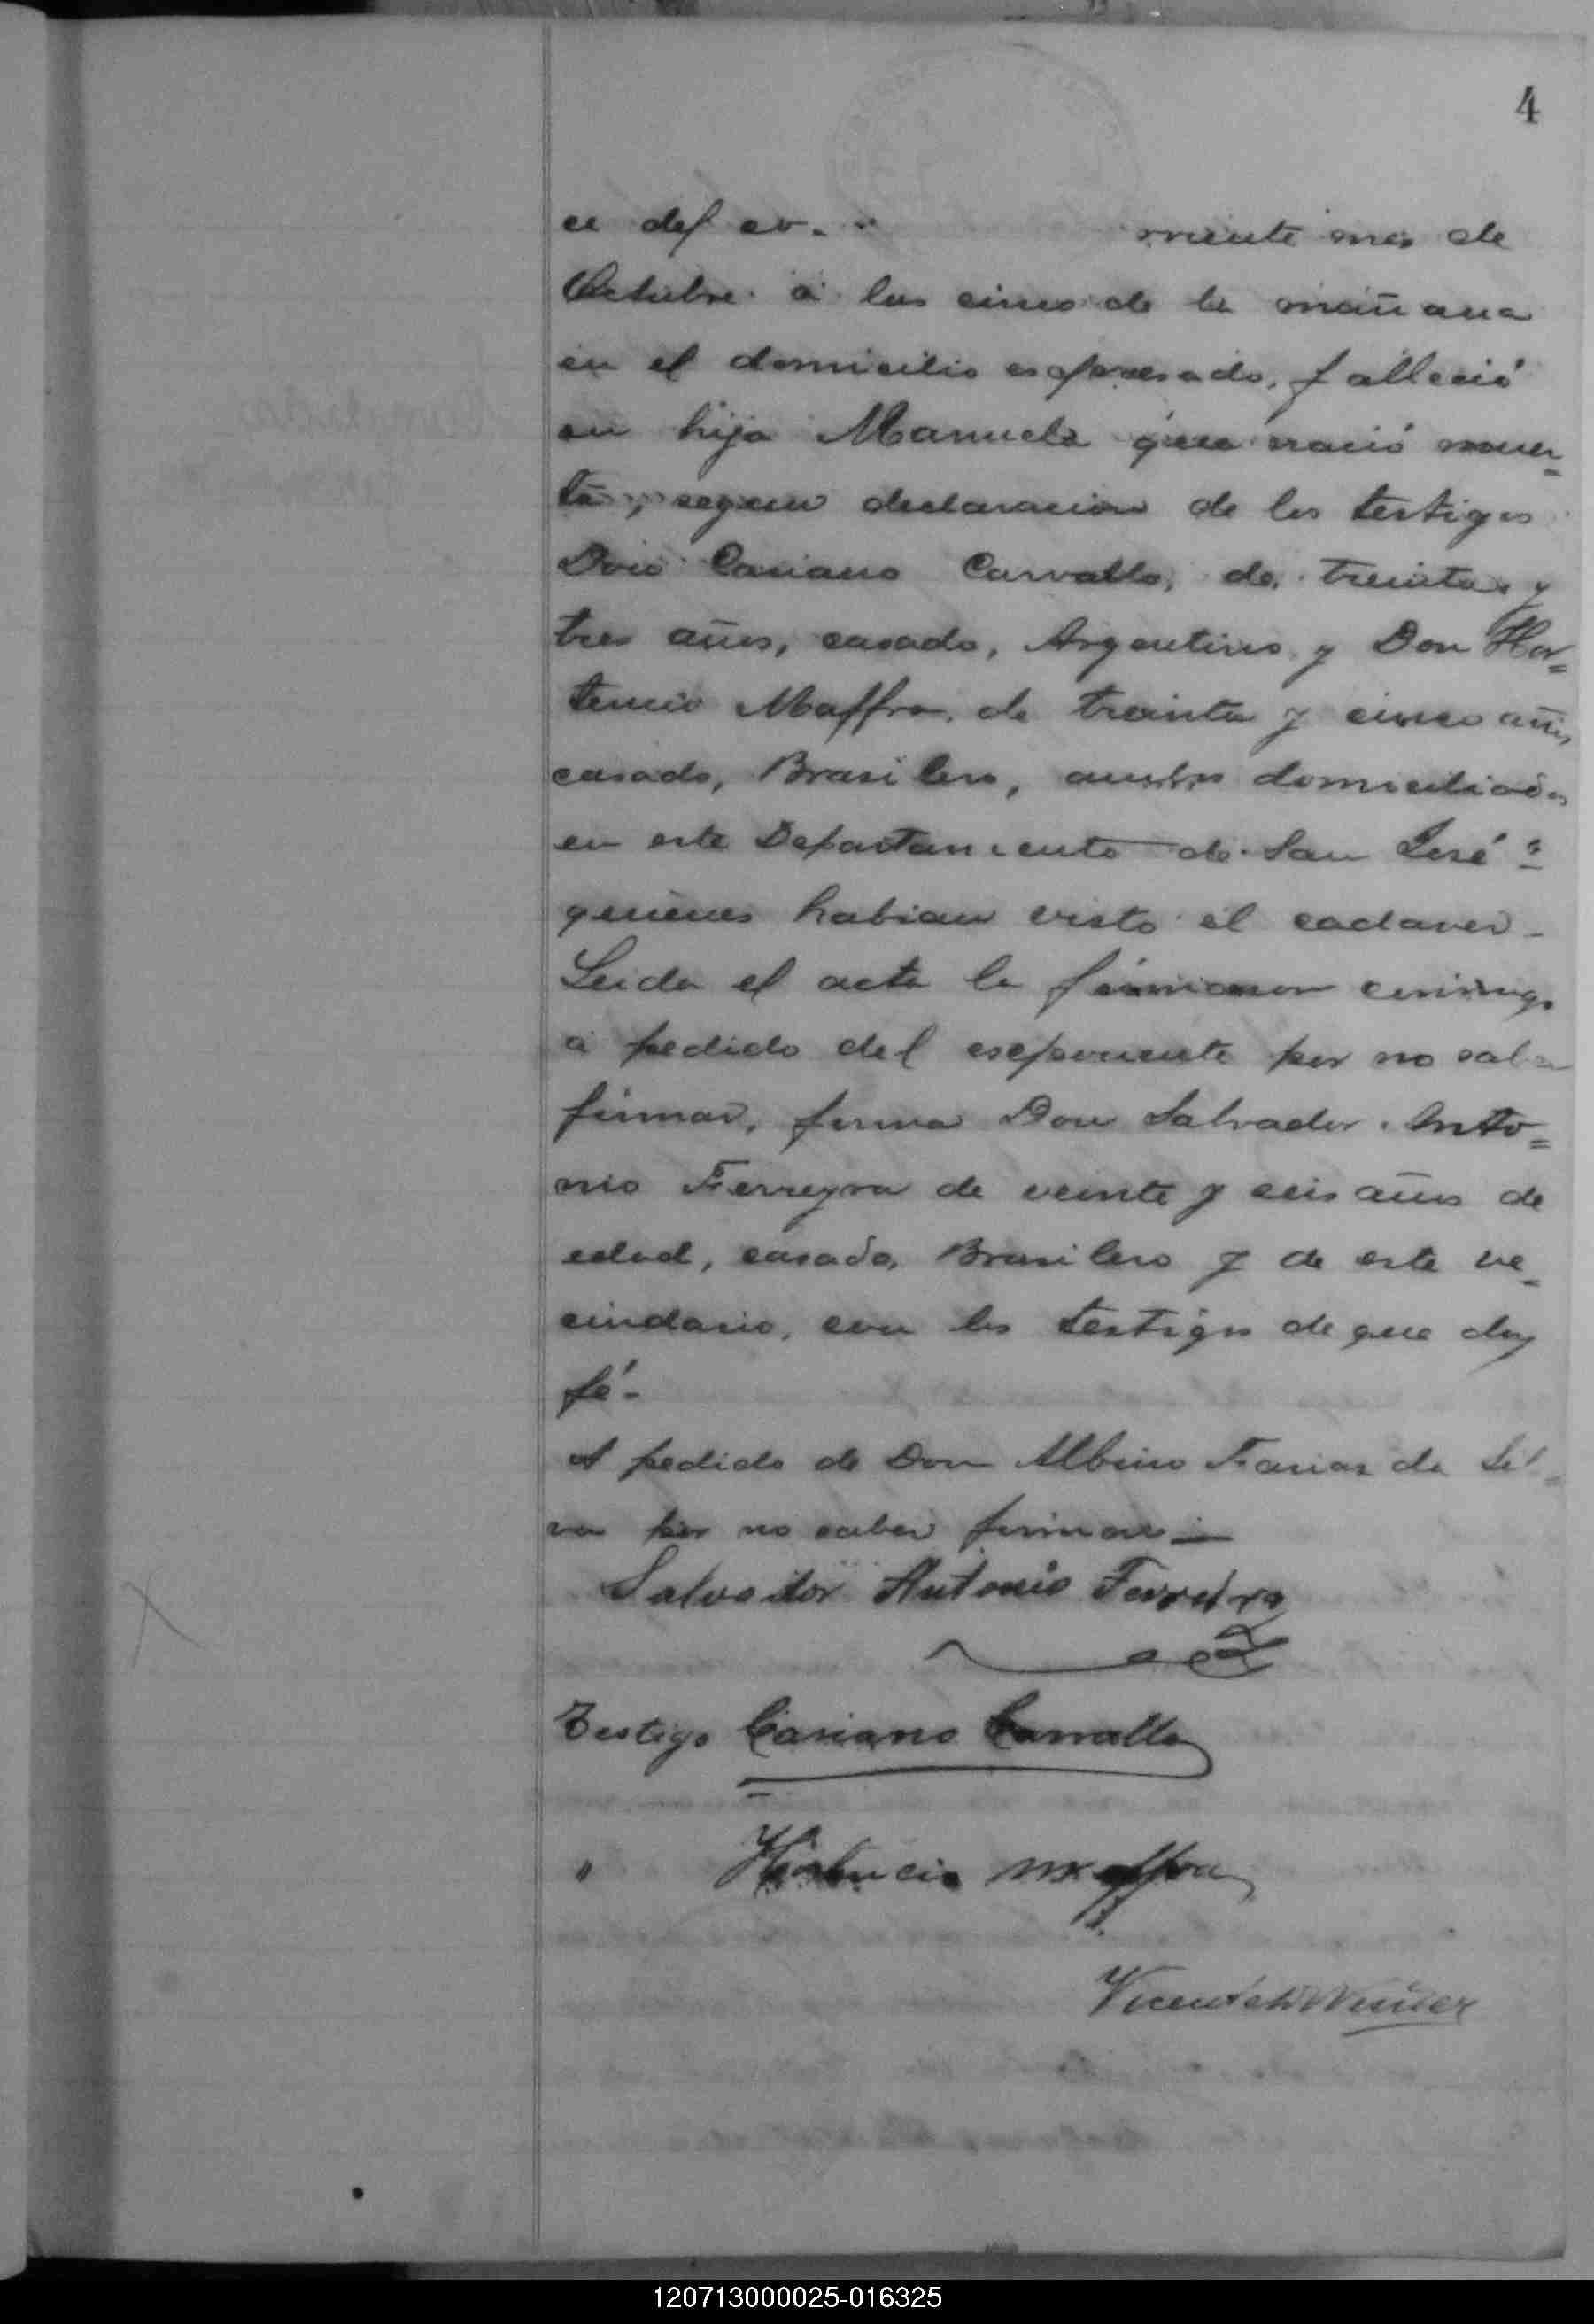 4
ce del co.. mente mes de
Octubre á las cinco de la mañana
en el domicilio espresado, falleció
su hija Manuela que nació muer=
ta, segun declaracion de los testigos
Don Casiano Carvallo, de treinta y
tres años, casado, Argentino y Don Hor=
tencio Maffra de treinta y cinco años
casado, Brasilero, ambos domiciliados
en este Departamento de San José
quienes habian visto el cadaver-
Leida el acta la firmaron conmigo
a pedido del esponente por no saber
firmar, firma Don Salvador Anto=
nio Ferreyra de veinte y seis años de
edad, casado, Brasilero y de este ve=
cindario, con los testigos de que doy
fé-
A pedido de Don Albino Farias da Sil=
va por no saber firmar-
Salvador Antonio Ferreira
Testigo Casiano Carvallo
" Hortencio Maffra
120713000025-016325